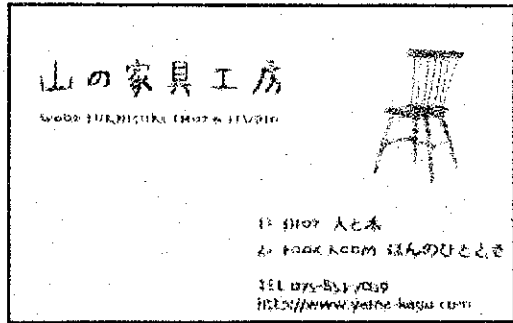 山の家具工房
WOOD FURNITURE SHOP & STUDIO
1F SHOP 人と木
2F BOOK ROOM ほんのひととき
TEL
http://www.yama-kagu.com